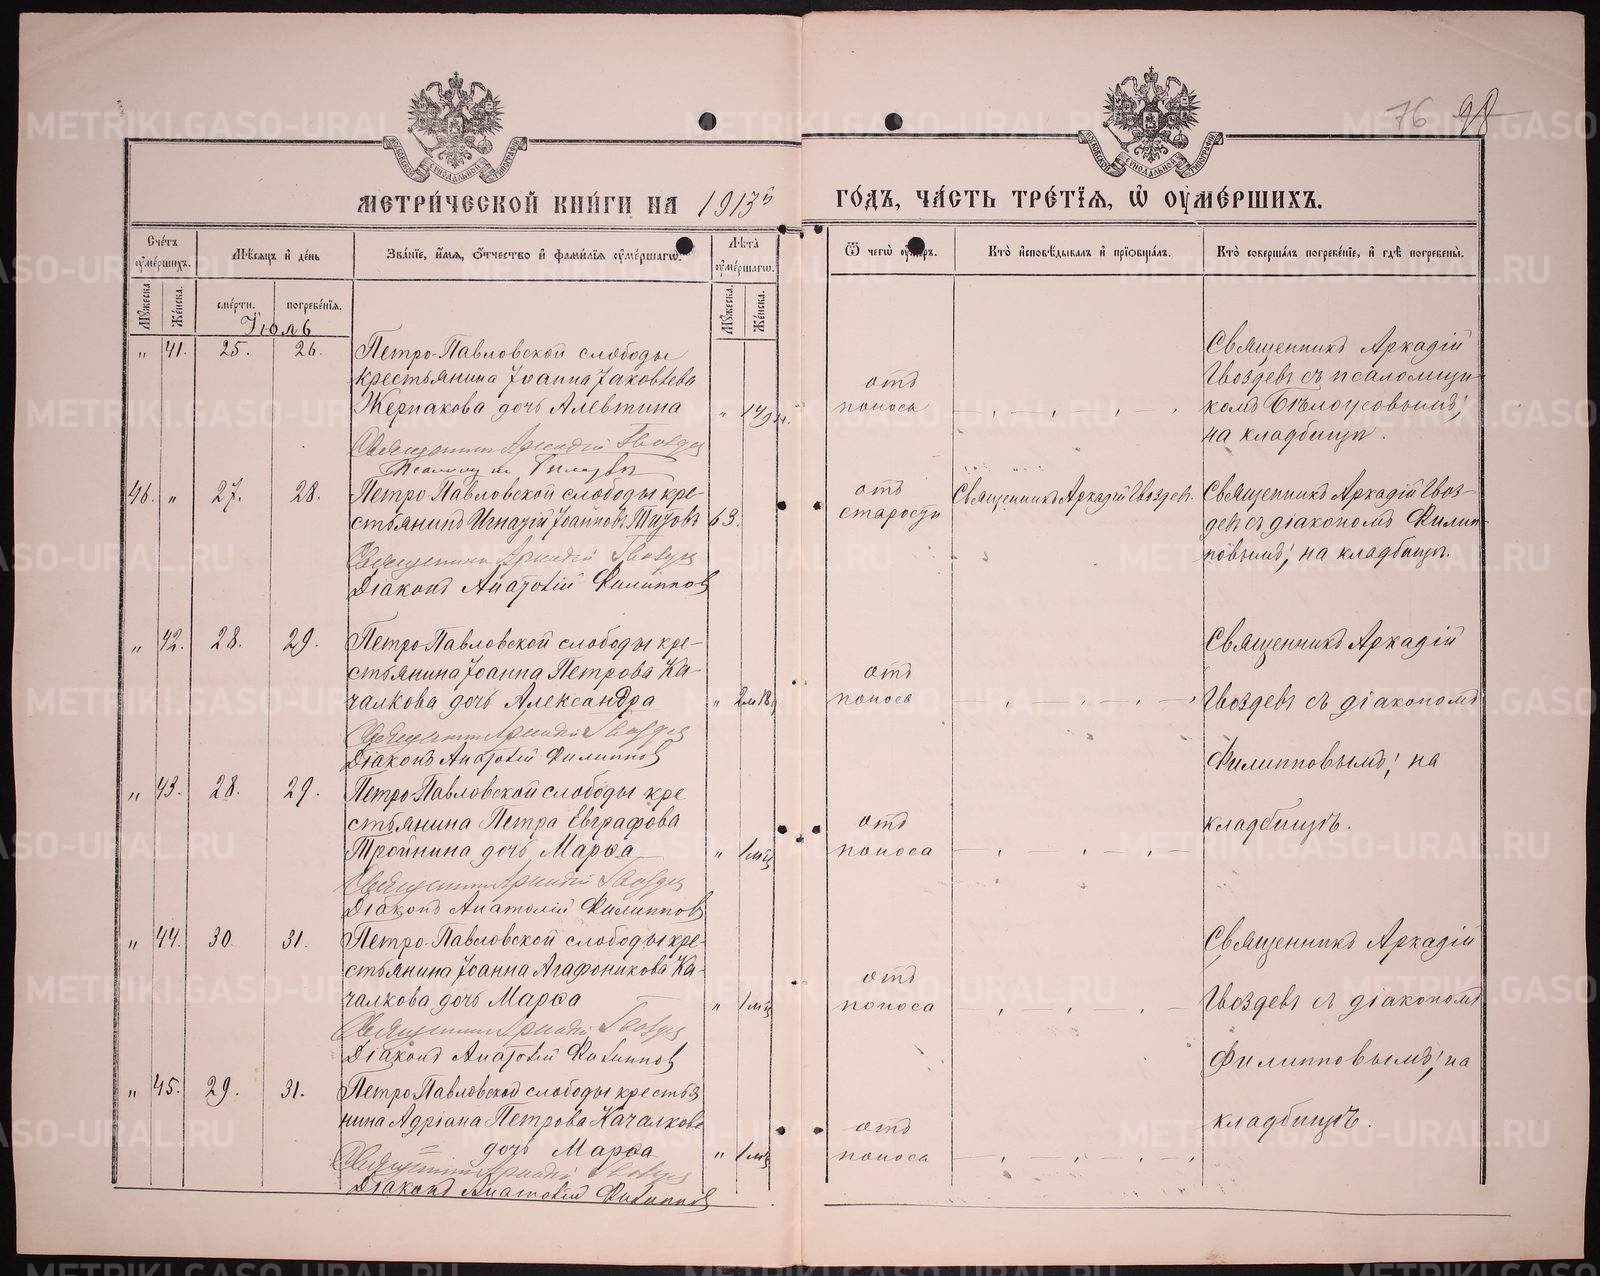 76 98
МЕТРИ́ЧЕСКОЙ КНИ́ГИ НА 1913й ГО́ДЪ, ЧА́СТЬ ТРЕ́ТІЯ, Ѡ ОУМЕ́РШИХЪ.
Сче́тъ оуме́ршихъ.
Мужеска.
Же́нска.
Мѣ́сяцъ и де́нь
сме́рти.
погребе́нія.
Зва́ніе, и́мя, о́тчество и фами́лія оуме́ршагѡ.
Лѣ́та оуме́ршагѡ.
Мужеска.
Же́нска.
Ѿ чегѡ̀ оуме́ръ.
Кто̀ исповѣ́дывалъ и пріобща́лъ.
Кто̀ соверша́лъ погребе́ніе, и гдѣ̀ погребе́ны.
Іюль
" 41. 25. 26.
Петро-Павловской слободы
крестьянина Іоанна Іаковлева
Жернакова дочь Алевтина
Священникъ Аркадій Гвоздев
отъ
поноса
Священникъ Аркадій
Гвоздевъ съ псаломщи-
комъ Бѣлоусовымъ;
на кладбищѣ.
46. " 27. 28.
Петро-Павловской слободы кре-
стьянинъ Игнатій Іоанновъ Титовъ 63.
Священникъ Аркадій Гвоздев
Діаконъ Анатолій Филиппов
отъ
старости
Священникъ Аркадій Гвоздевъ.
Священникъ Аркадій Гвоз-
девъ съ діакономъ Филип-
повымъ; на кладбищѣ.
" 42. 28. 29.
Петро-Павловской слободы кре-
стьянина Іоанна Петрова Ка-
чалкова дочь Александра " 2 м 18 д
Священникъ Аркадій Гвоздев
Діаконъ Анатолій Филиппов
отъ
поноса
Священникъ Аркадій
Гвоздевъ съ діакономъ
Филипповымъ; на
кладбищѣ.
" 43. 28. 29.
Петро-Павловской слободы кре
стьянина Петра Евграфова
Тройнина дочь Марѳа " 1 мц
Священникъ Аркадій Гвоздев
Діаконъ Анатолій Филиппов
отъ
поноса
" 44. 30. 31.
Петро-Павловской слободы кре-
стьянина Іоанна Агафоникова Ка-
чалкова дочь Марѳа " 1 мц
Священникъ Аркадій Гвоздев
Діаконъ Анатолій Филиппов
отъ
поноса
Священникъ Аркадій
Гвоздевъ съ діакономъ
Филипповымъ; на
кладбищѣ.
" 45. 29. 31.
Петро-Павловской слободы крестья
нина Адріана Петрова Качалкова
дочь Марѳа " 1 мц
Священникъ Аркадій Гвоздев
Діаконъ Анатолій Филиппов
отъ
поноса
METRIKI.GASO-URAL.RU